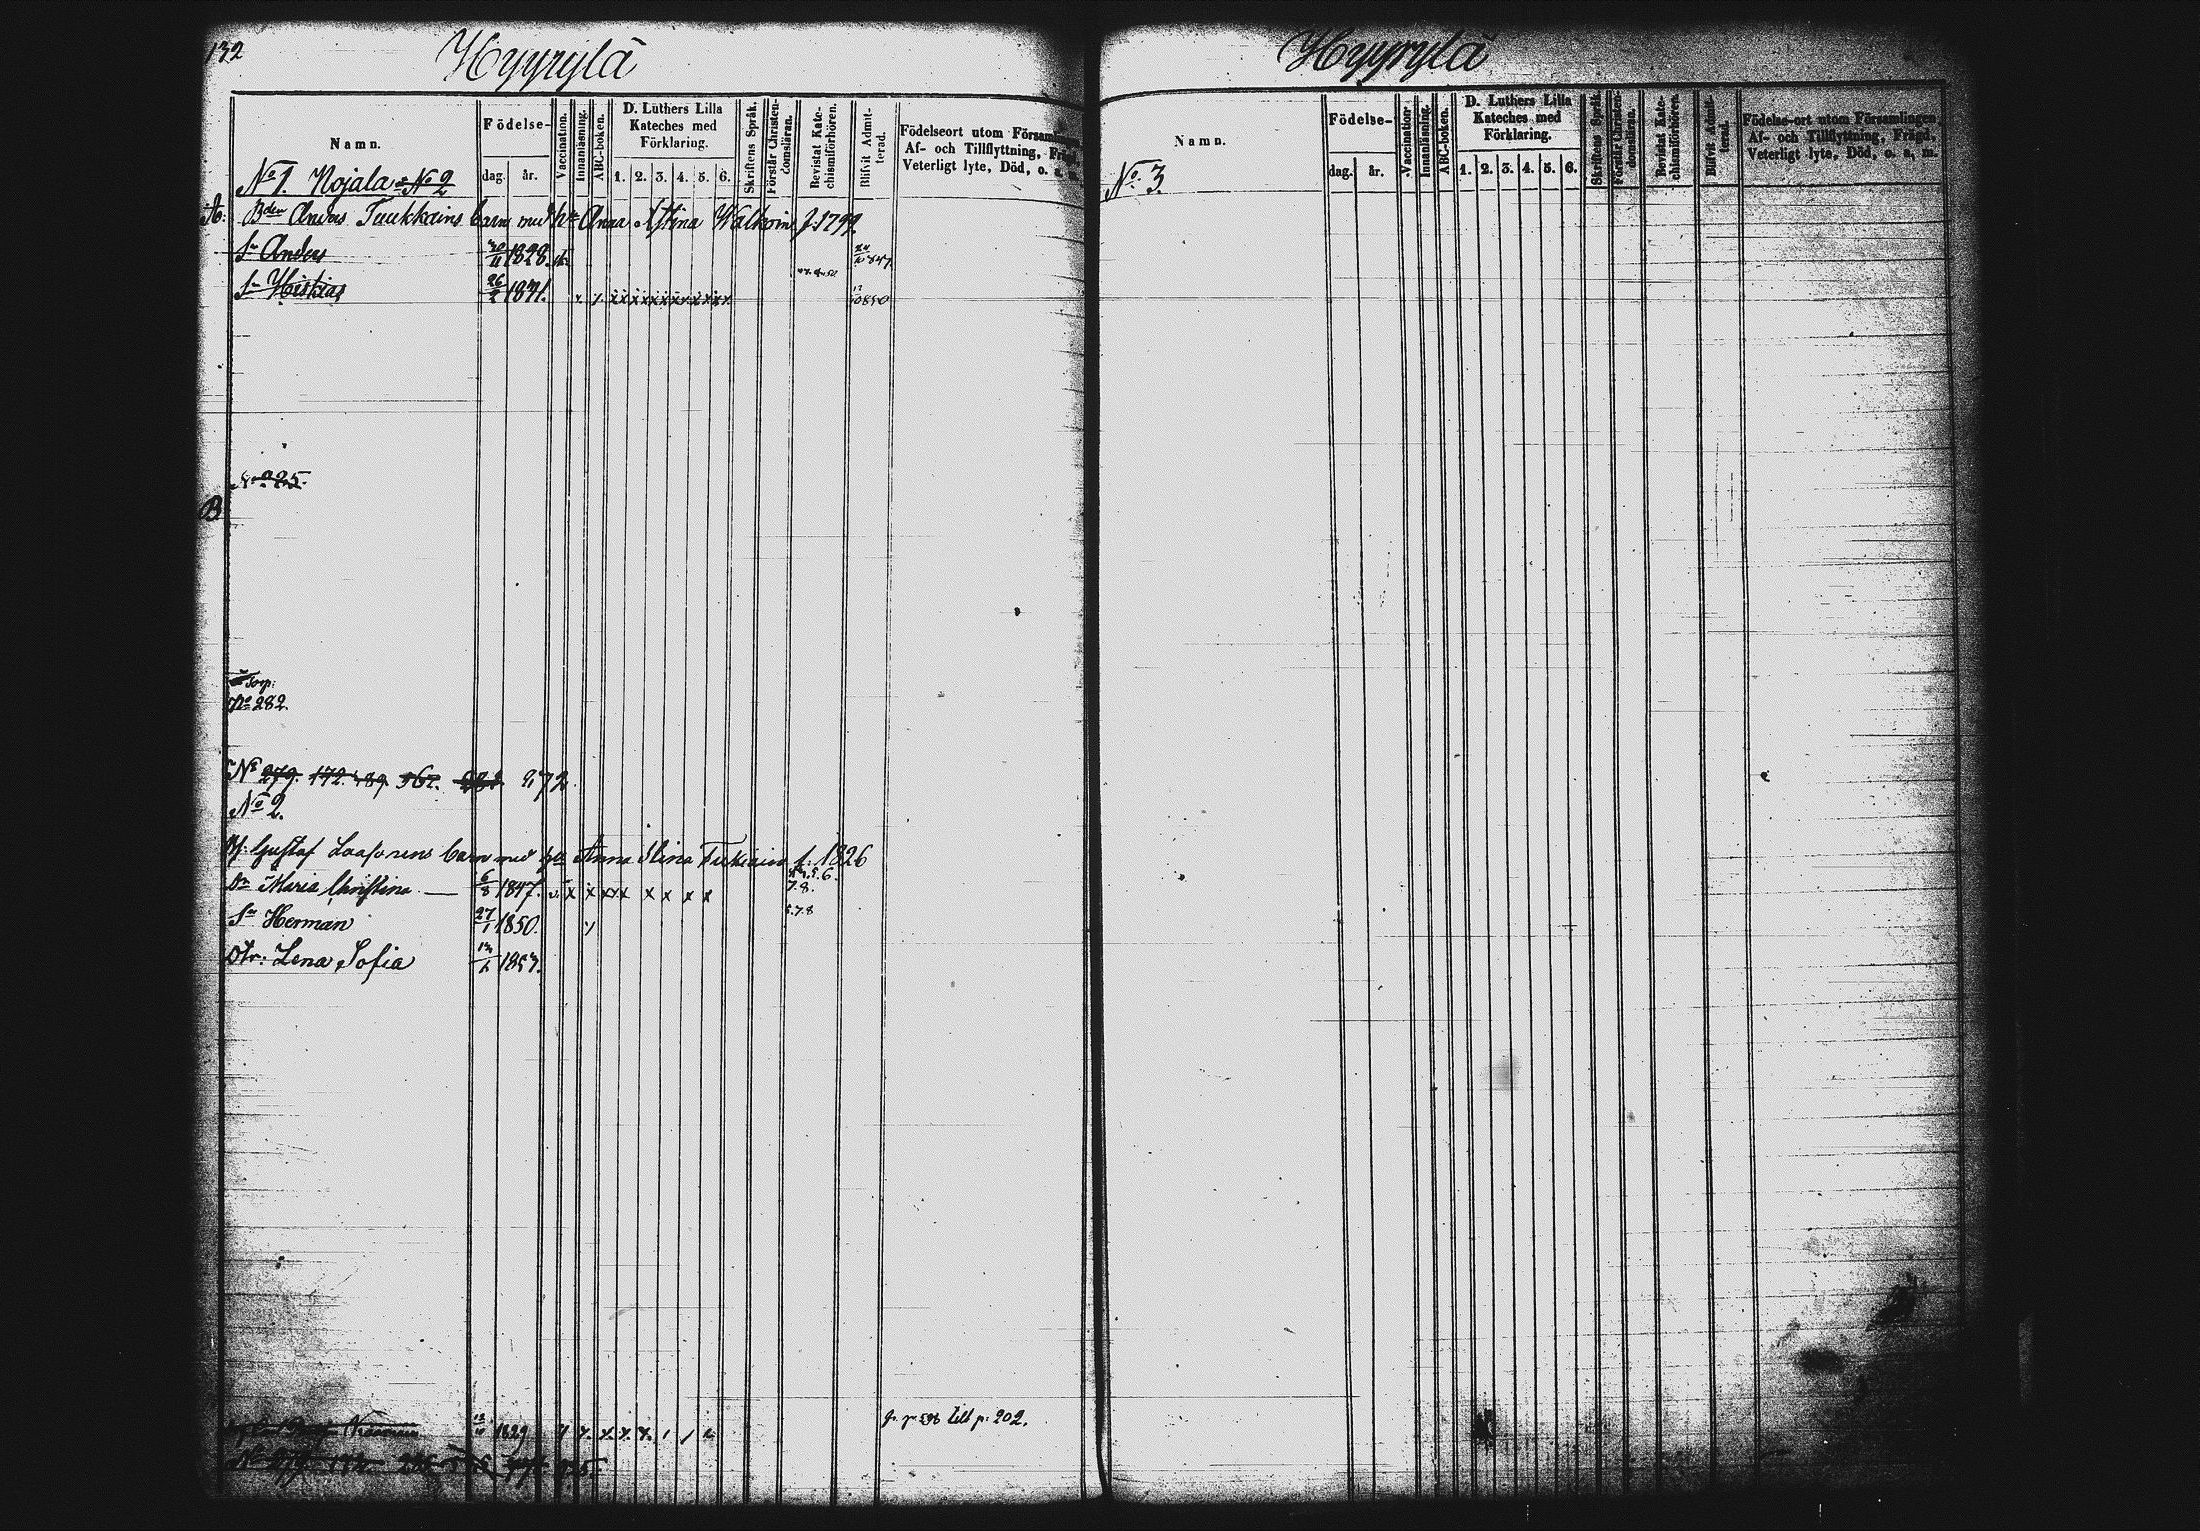 132
Hyyrylä
Namn.
Födelse-
dag. år.
Vaccination.
Innanläsning.
ABC-boken.
D. Luthers Lilla Kateches med Förklaring.
1. 2. 3. 4. 5. 6.
Skriftens Språk.
Förstår Christen-domsläran.
Bevistat Kate-chismiförhören.
Blifvit Admit-terad.
Födelseort utom Församlingen
Af- och Tillflyttning, Frägd,
Veterligt lyte, Död, o. s. m.
No 1. Nojala No 2
Anders Tuukkains barn med Anna Stina f. 1799.
Sn Anders 1828.
Sn Hiskias 26/2 1831. 1850
B
Torp:
No 282.
No 279. 172. 972
No 2.
Gustaf Laasonens barn med Anna Stina f. 1826
Dr Maria Christina — 6/8 1847. x x x x x x x x
7.8.
Sn Herman 27/1 1850. 5.7.8
Dtr: Lena Sofia 1853.
1829 p: 202.
Hyyrylä
Namn.
Födelse-
dag. år.
Vaccination.
Innanläsning.
ABC-boken.
D. Luthers Lilla Kateches med Förklaring.
1. 2. 3. 4. 5. 6.
Skriftens Språk.
Förstår Christen-domsläran.
Bevistat Kate-chismiförhören.
Blifvit Admit-terad.
Födelse-ort utom Församlingen
Af- och Tillflyttning, Frägd,
Veterligt lyte, Död, o. s. m.
No. 3